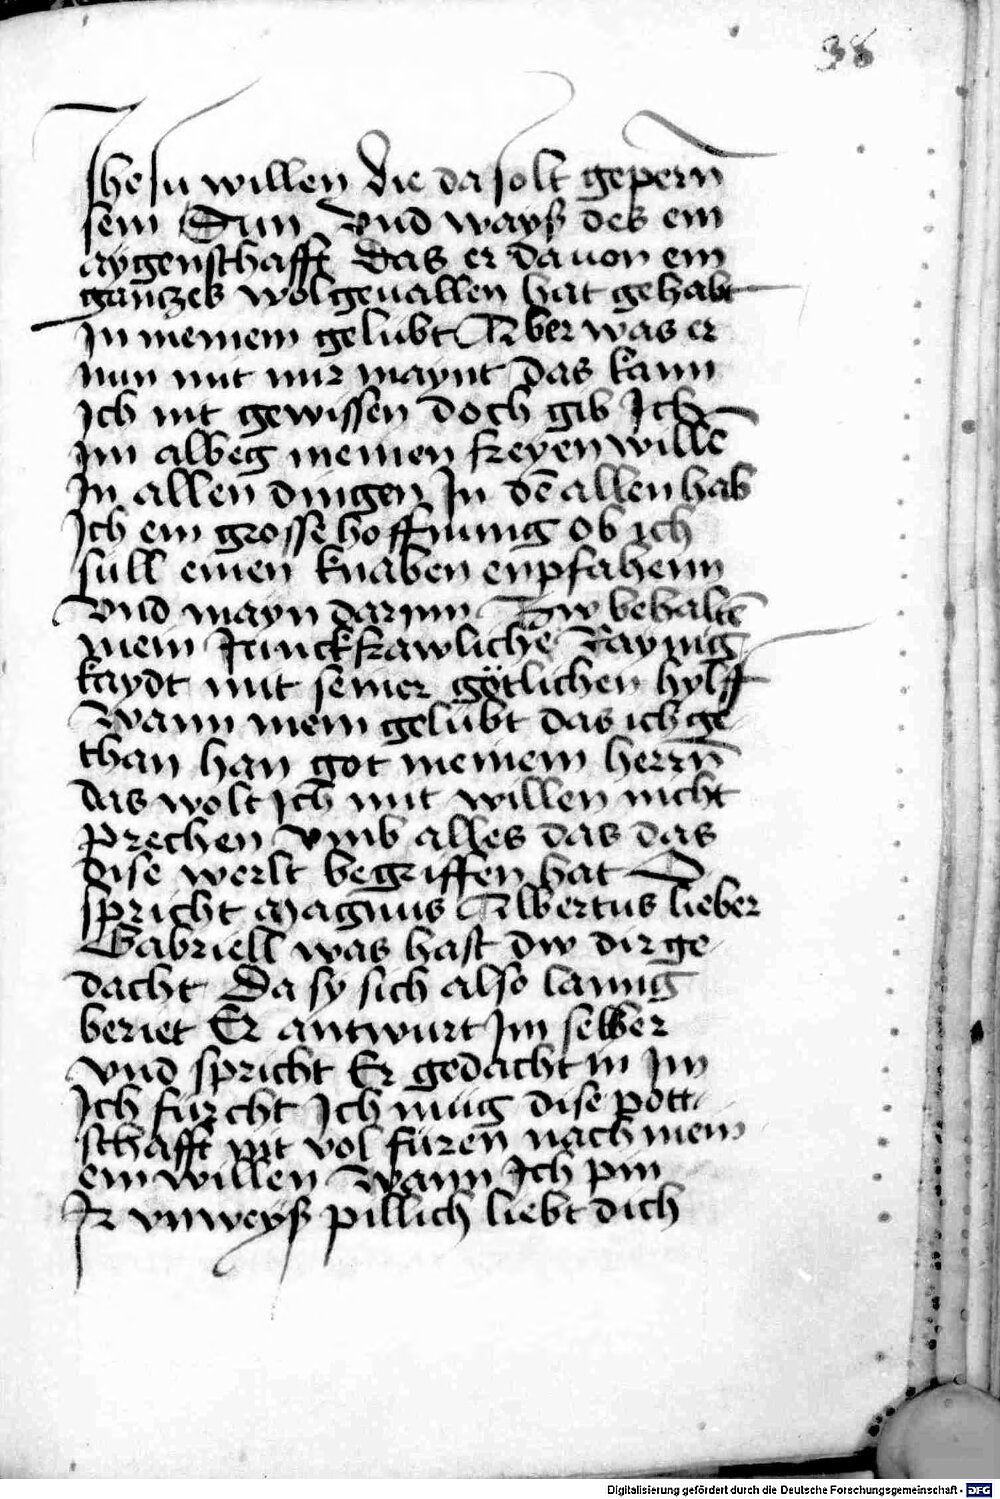 38
Jhesu willen die da solt gepern̄
sein Sun Vnd wayß des ein
aygenschafft Das er dauon ein
gantzes wolgeuallen hat gehabt
Jn meinem gelübt Aber was er
nun mit mir maynt das kann
Ich nit gewissen doch gib Ich
im albeg meinen freyen willē
Jn allen dingen Jn dē allen hab
Ich ein grosse hoffnung ob ich
süll einen knaben enpfahenn
Vnd mayn darinn Zw behaltē
mein Junckfrawliche Raynig
kaydt mit seiner götlichen hylff
Wann mein gelübt das ich ge
than han got meinem herrn̄
das wolt ich mit willen nicht
prechen vmb alles das das
dise werlt begriffen hat
spricht Magnus Albertus lieber
Gabriell was hast dw dir ge
dacht Da sy sich also lanng
beriet Er antwurt Jm selber
Vnd spricht Er gedacht in Jm
Ich fürcht Ich müg dise pott
schafft nit vol füren nach mein
em willen Wann Ich pin
Jr vnweyß pillich liebt dich
Digitalisierung gefördert durch die Deutsche Forschungsgemeinschaft - DFG